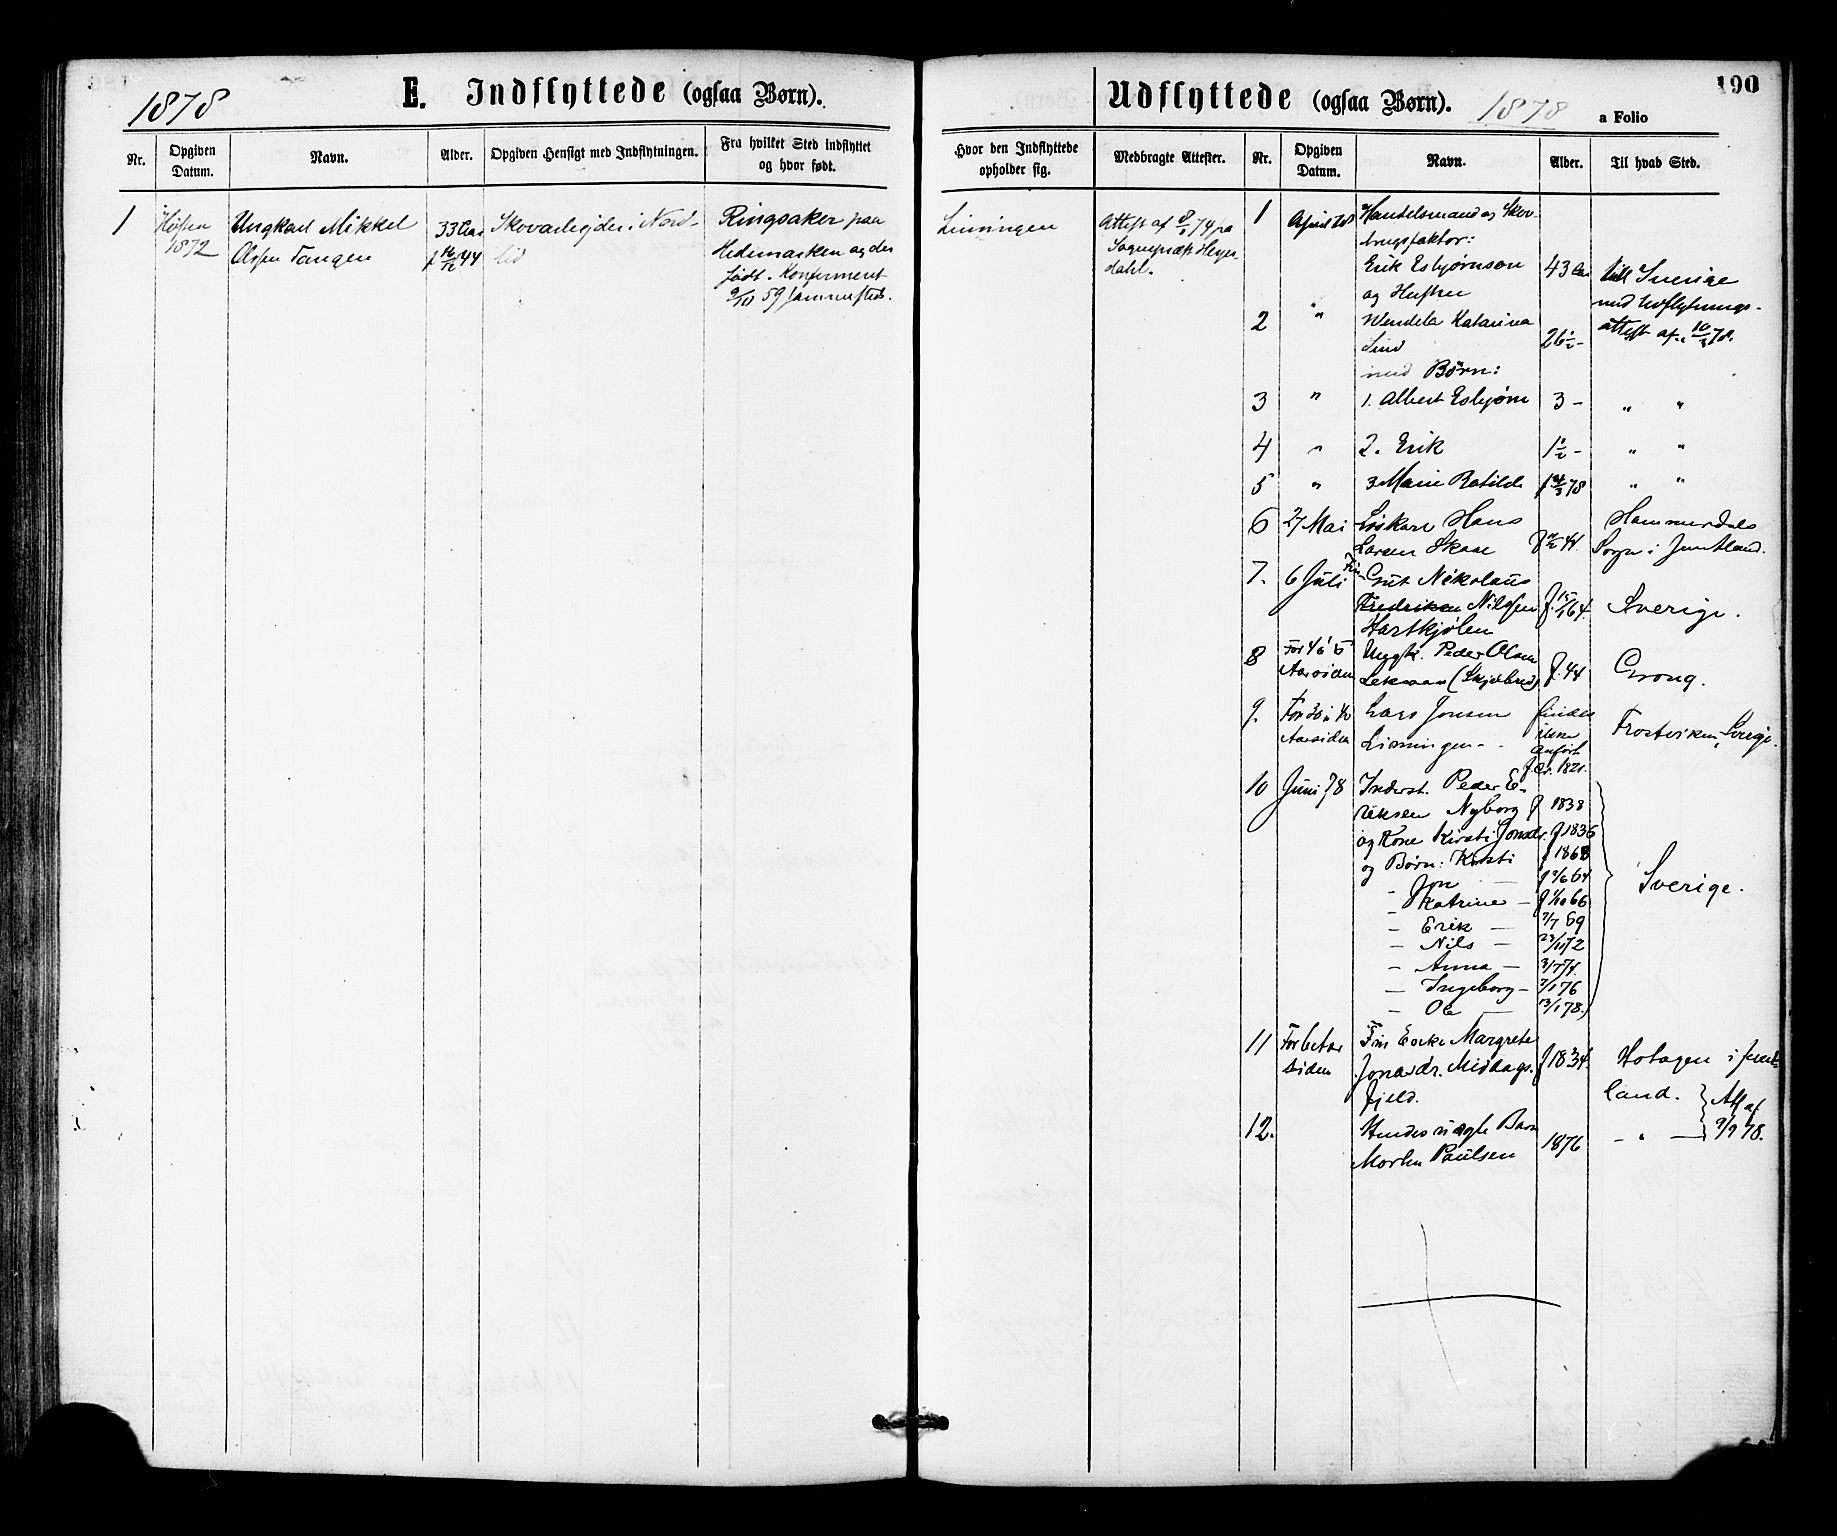 1878
E. Indflyttede (ogsaa Børn).
Nr.
Opgiven Datum.
Navn.
Alder.
Opgiven Hensigt med Indflytningen.
Fra hvilket Sted indflyttet og hvor født.
1
Høsten 1872
Ungkarl Mikkel
Olsen Tangen
33 Aar
Skovarbejder i Nord-
lid
Ringsaker paa
Hedemarken og der
født. Konfirmeret
59 sammesteds.
Udflyttede (ogsaa Børn).
1878
190
a Folio
Hvor den Indflyttede opholder sig.
Medbragte Attester.
Nr.
Opgiven Datum.
Navn.
Alder.
Til hvad Sted.
Limingen
Attest af 74 fra
Sogneprest Heyer
dahl.
1
April 78
Handelsmand og Skov-
brugsfaktor:
Erik Esbjørnson
43 Aar
til Sverige
og Hustru
med Udflytnings-
2
"
Wendela Katarina
Lind
26½ -
attest af 10/3 78.
med Børn:
3
"
1. Albert Esbjørn
3 -
" "
4
"
2. Erik
1½ -
" "
5
"
3. Marie Botilde
" "
6
27 Mai
Løskarl Hans
Larsen Skaar
Hammerdals
Sogn i Jemtland.
7.
6 Juli
Fin
Gut Nikolaus
Fredriksen Nilssen
Hartkjølen
f. 15/1 64.
Sverige.
8
For 4 à 5
Aar siden
Ungk. Peder Olsen
Leksaas (Skjelbred)
f. 44
Grong.
9.
For 30 à 40
Aar siden
Lars Jonsen
Limingen -
findes
ikke
anført
f. Ca. 1821.
Frostviken, Sverige.
10
Juni 78
Inderst. Peder E-
riksen Nyborg
f 1838
og Kone Kirsti Jonsdr.
f 1836
og Børn: Kirsti
f 1863
- Jon -
f 2/6 64
- Katrine -
f 1/10 66
- Erik -
7/7 69
- Nils -
23/11 72
- Anna -
3/7 74.
- Ingeborg -
7/1 76
- Ole -
13/1 78.
Sverige.
11
For 6 Aar
siden
Fin Enke Margrete
Jonasdr. Middags-
fjeld.
f 1834.
Hotagen i Jemt-
land.
Att af
9/9 78.
12.
Hendes uægte Barn
Morten Paulsen
1876
- " -